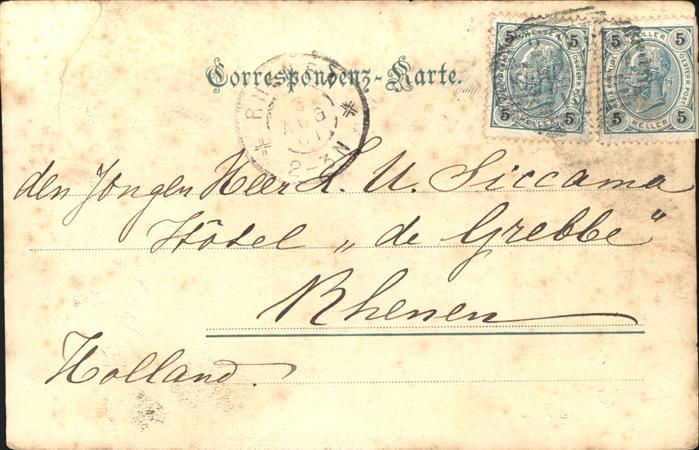 Correspondenz-Karte.
5 5 5 5
HELLER
5 5 5 5
HELLER
RHENEN
AUG
2-3N
den Jongen Heer L. U. Siccama
Hôtel „de Grebbe"
Rhenen
Holland.